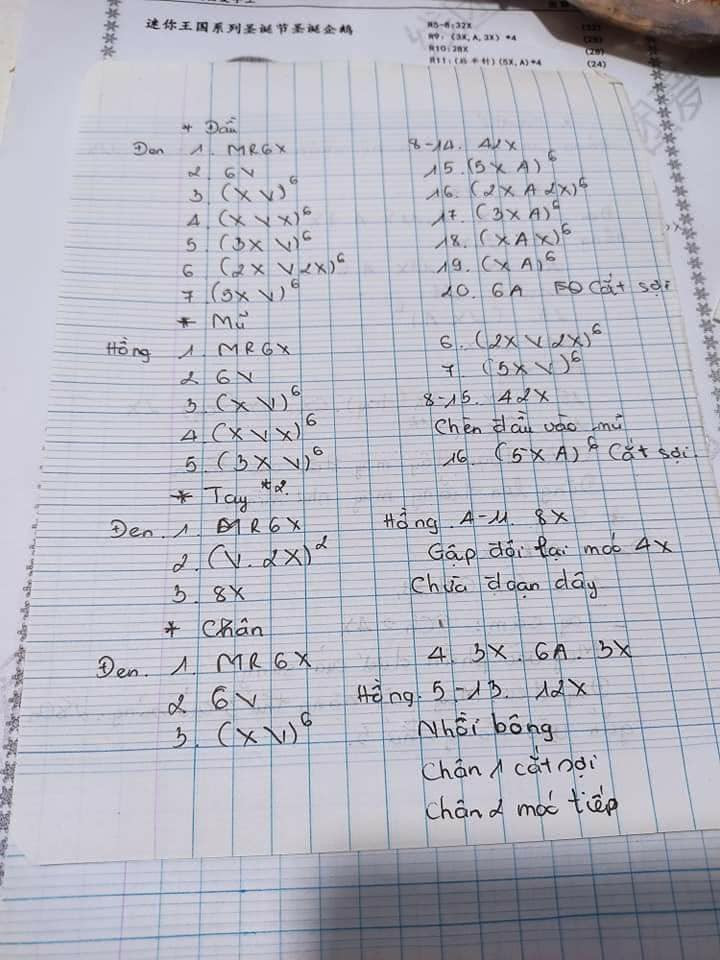 迷你王国系列圣诞节圣诞企鹅
R5-8:32X (32)
R9: (3X,A,3X) *4 (28)
R10:28X (28)
(5X,A)*4 (24)
* Đầu
Đen 1. MR6X
2 6V
3 (X V)⁶
4. (X V X)⁶
5. (3X V)⁶
6 (2X V 2X)⁶
7 (5X V)⁶
8-14. 42X
15. (5X A)⁶
16. (2X A 2X)⁶
17. (3X A)⁶
18. (X A X)⁶
19. (X A)⁶
20. 6A Cắt sợi
* Mũ
Hồng 1 MR6X
2 6V
3. (X V)⁶
4. (X V X)⁶
5. (3X V)⁶
6. (2X V 2X)⁶
7. (5X V)⁶
8-15. 42X
Chèn đầu vào mũ
16. (5X A)⁶ Cắt sợi.
* Tay *2.
Đen. 1. MR6X
2. (V. 2X)²
3. 8X
Hồng. 4-11. 8X
Gấp đôi lại móc 4X
Chừa đoạn dây
* Chân
Đen. 1. MR6X
2 6V
3. (X V)⁶
4. 3X. 6A. 3X
Hồng. 5-13. 12X
Nhồi bông
Chân 1 cắt sợi
Chân 2 móc tiếp